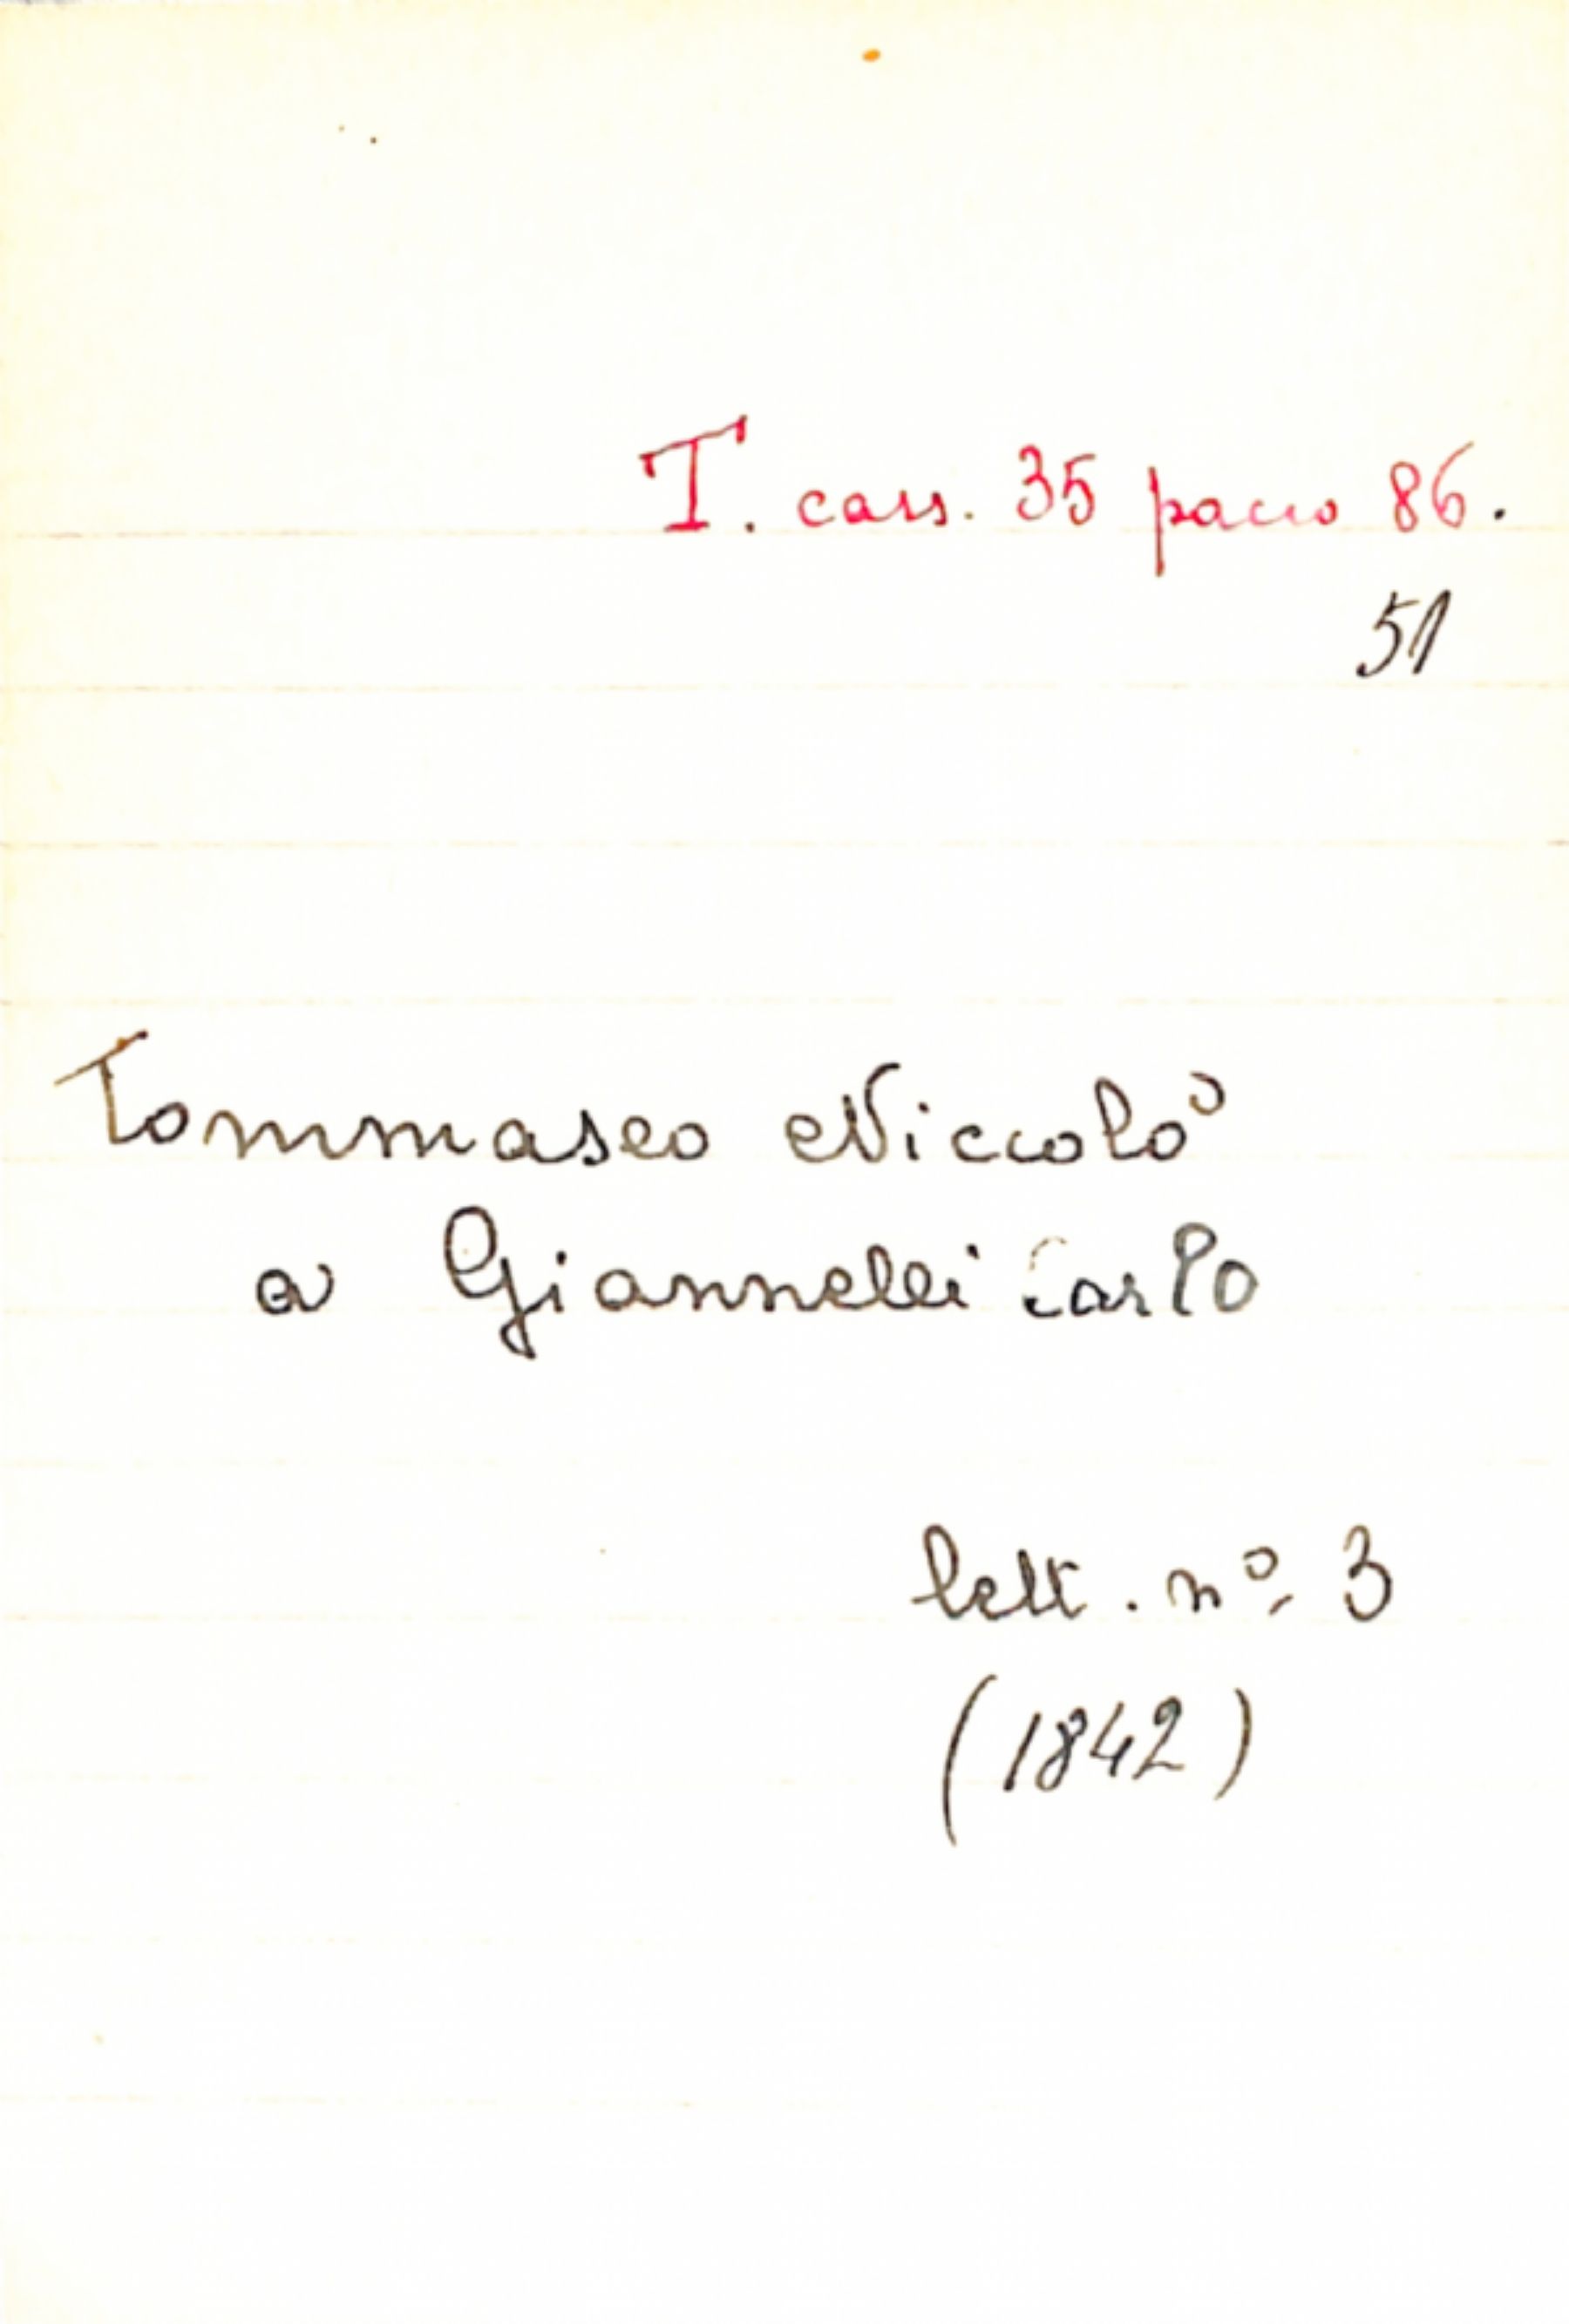 T. cass. 35 pacco 86.
51
Tommaseo Niccolò
a Giannelli Carlo
lett. nº 3
(1842)